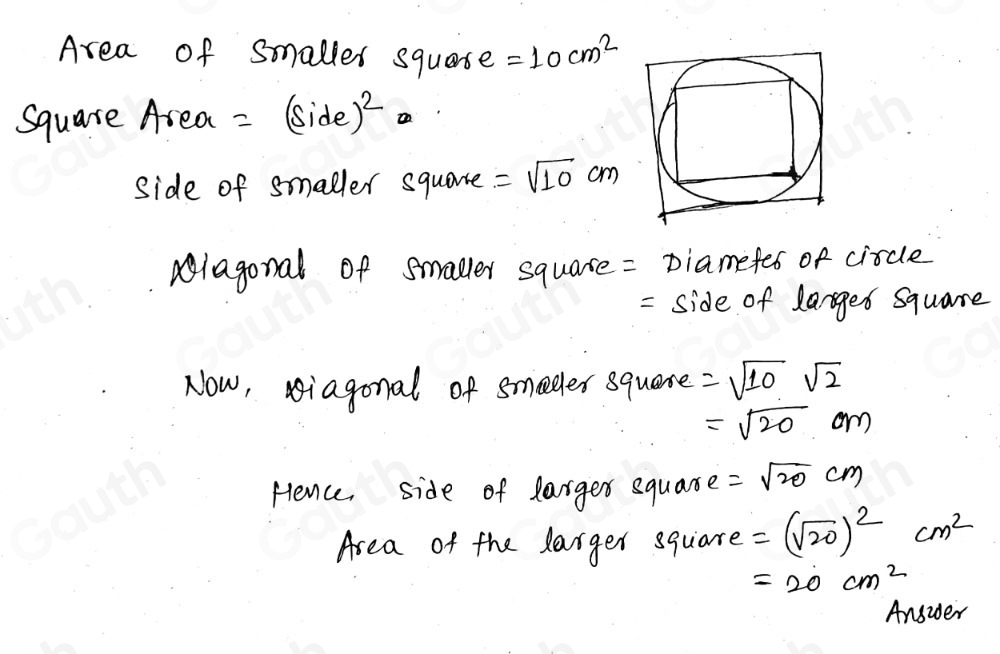 Area of smaller square = 10 cm²
Square Area = (Side)²
Side of smaller square = √10 cm
Diagonal of smaller square = Diameter of circle
= side of larger square
Now, Diagonal of smaller square = √10 √2
= √20 cm
Hence, side of larger square = √20 cm
Area of the larger square = (√20)² cm²
= 20 cm²
Answer